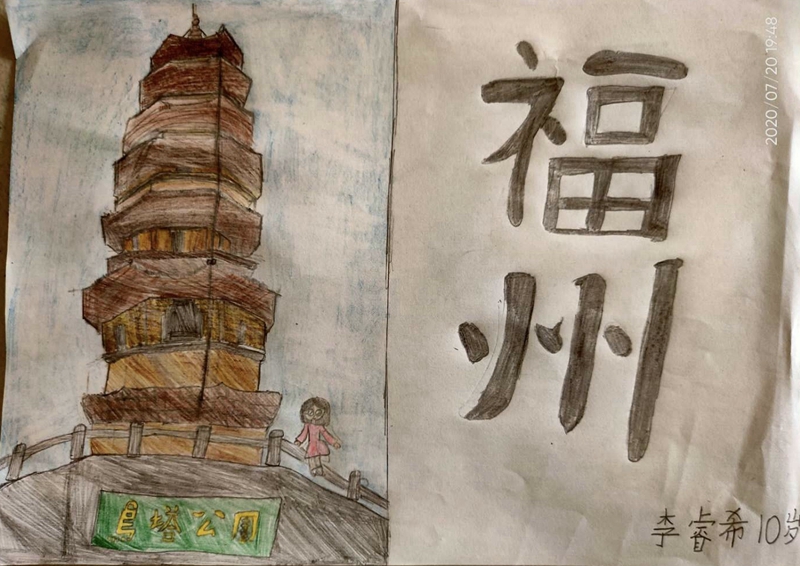 塔公园
福
州
李睿希 10岁
2020/07/20 19:48